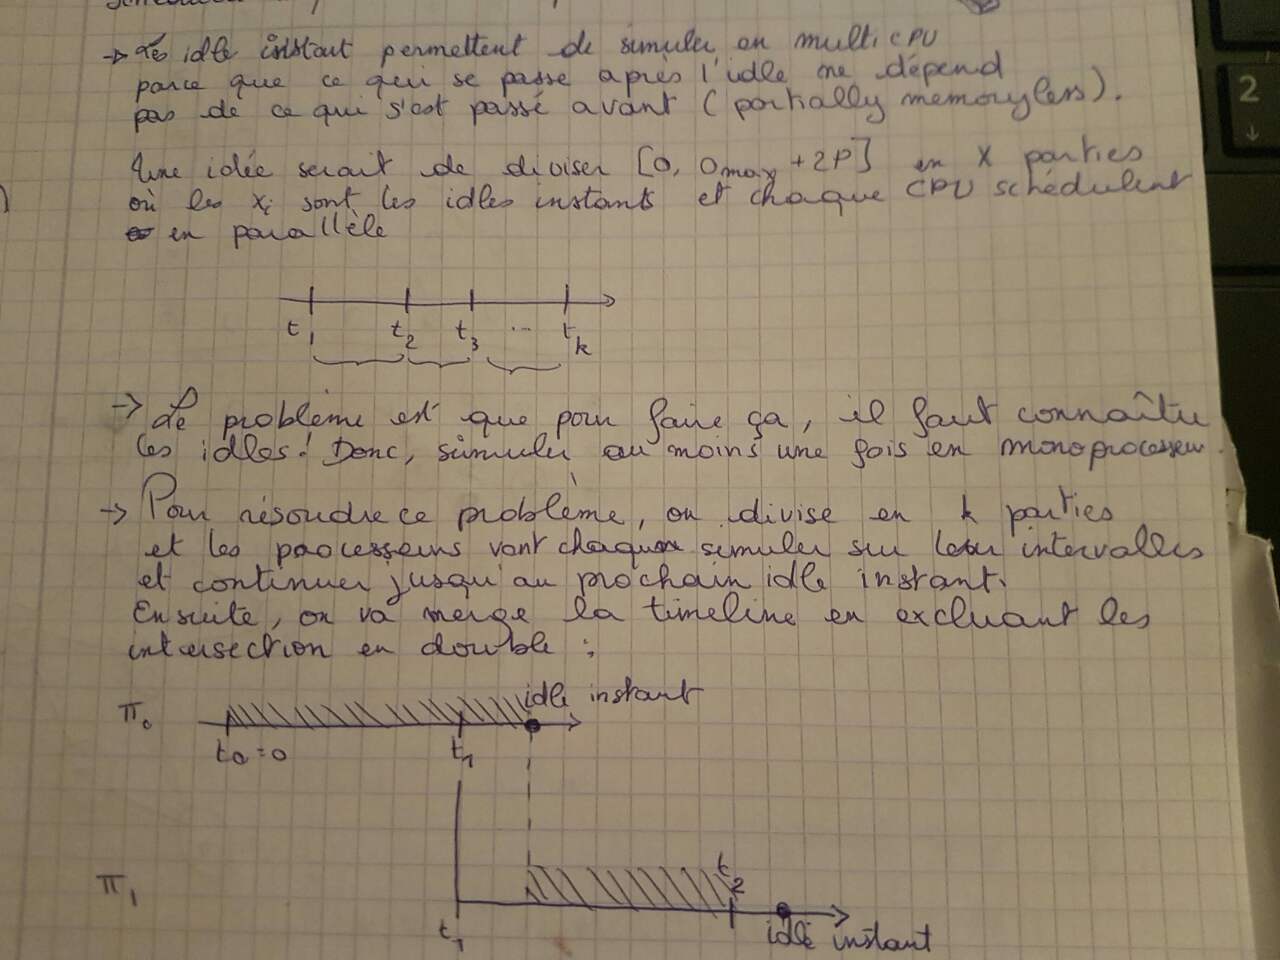 → Les idle instant permettent de simuler en multi CPU
parce que ce qui se passe après l'idle ne dépend
pas de ce qui s'est passé avant (partially memoryless).
Une idée serait de diviser [0, Omax + 2P] en X parties
où les xi sont les idles instants et chaque CPU schédulent
en parallèle
t1 t2 t3 ... tk
→ Le problème est que pour faire ça, il faut connaître
les idles! Donc, simuler au moins une fois en monoprocesseur.
→ Pour résoudre ce problème, on divise en k parties
et les processeurs vont chaqun simuler sur leur intervalles
et continuer jusqu'au prochain idle instant.
Ensuite, on va merge la timeline en excluant les
intersection en double :
idle instant
π0
t0 = 0 t1
t2
π1
t1 idle instant
2